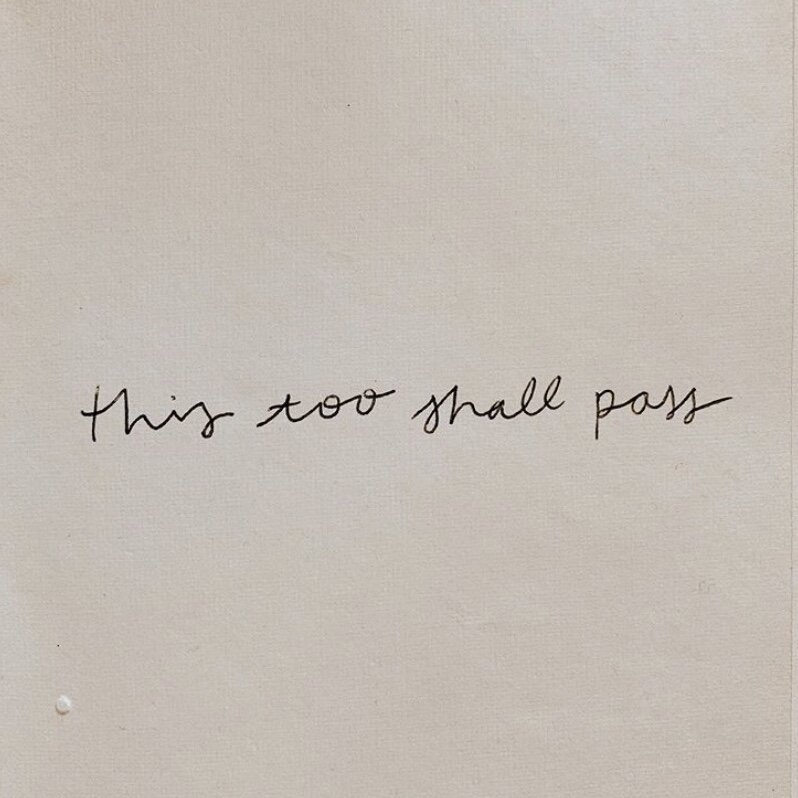 this too shall pass